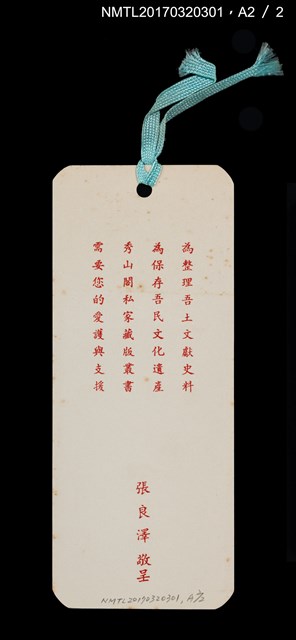 NMTL20170320301，A2 / 2
為整理吾土文獻史料
為保存吾民文化遺產
秀山閣私家藏版叢書
需要您的愛護與支援
張良澤 敬呈
NMTL20170320301, A2/2